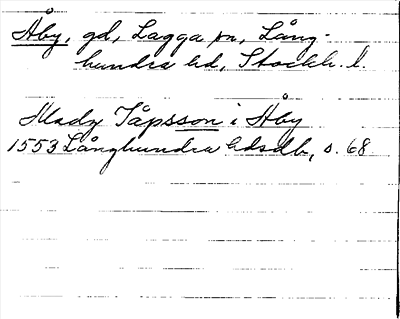 Åby, gd, Lagga sn, Lång-
hundra hd, Stockh. l.
Mady Jåpsson i Åby
1553 Långhundra hdsdb, s. 68